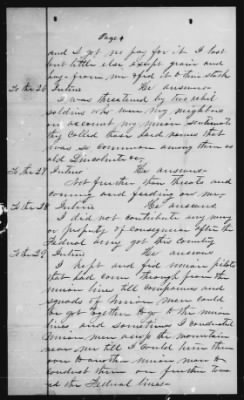 Page 4
and I got no pay for it I lost
but little else except grain and
from me & fed it to their stock
To the 26 Interr He answers
I was threatened by two rebel
soldiers who were my neighbors
on account my union sentiments
they called base hard names that
was so common among them as
old Lincolnite &c
To the 27 Interr He answers
Not further than threats and
coming and feeding on me
To the 28 Interr He answers
I did not contribute any money
or property of consequence after the
Federal army got this country
To the 29 Interr He answers
I kept and fed union pilots
that had come through from the
union lines till companies and
squads of union men could
be got together to go to the union
lines, and sometimes I conducted
union men across the mountain
near me till I could turn them
over to another union man to
conduct them on further towards
the Federal lines